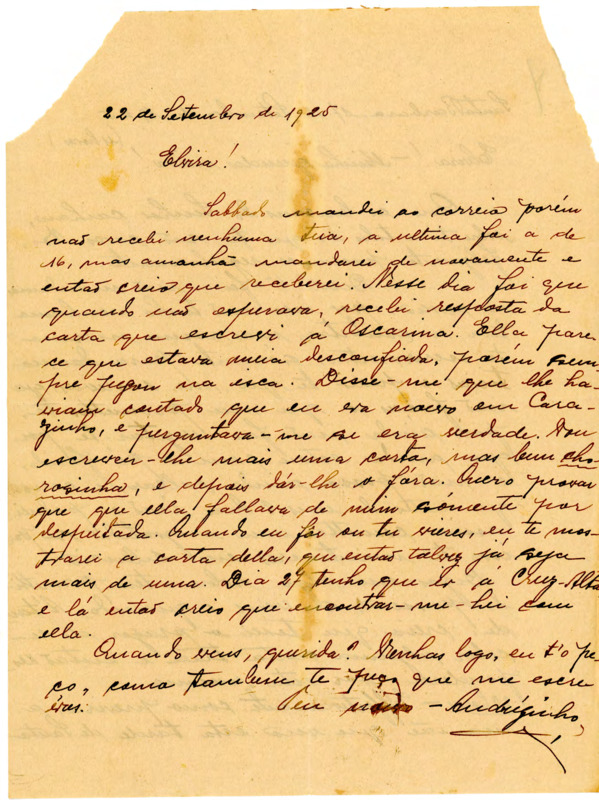 22 de Setembro de 1925
Elvira!
Sabbado mandei ao correio porém
não recebi nenhuma tua, a ultima foi a de
16, mas amanhã mandarei de novamente e
então creio que receberei. Nesse dia foi que
quando não esperava, recebi resposta da
carta que escrevi á Oscarma. Ella pare-
ce que estava meia desconfiada, porém sem
pre pegou na isca. Disse-me que lhe ha-
viam contado que eu era noivo em Cara-
zinho, e perguntava-me se era verdade. Vou
escrever-lhe mais uma carta, mas bem cho
rozinha, e depois dár-lhe o fóra. Quero provar
que que ella fallava de mim sómente por
despeitada. Quando eu for ou tu vieres, eu te mos-
trarei a carta della, que então talvez já seja
mais de uma. Dia 27 tenho que ir á Cruz-Alta
e lá então creio que encontrar-me-hei com
ella.
Quando vens, querida? Venhas logo, eu t'o pe-
ço, como tambem te peço que me escre
vas. Teu noivo - Andrézinho